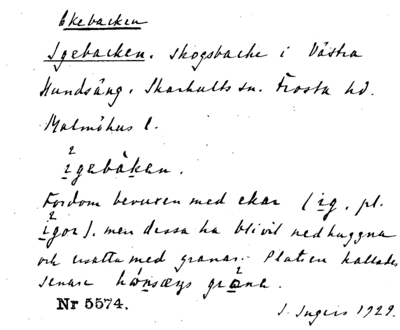 Ekebacken
Igebacken. Skogsbacke i Västra
Hundsäng. Skarhults sn. Frosta hd.
Malmöhus l.
igebàkan.
Fordom bevuxen med ekar (ig, pl.
igor), men dessa ha blivit nedhuggna
och ersatta med granar. Platsen kallades
senare
Nr 5574.
J. Ingers 1929.